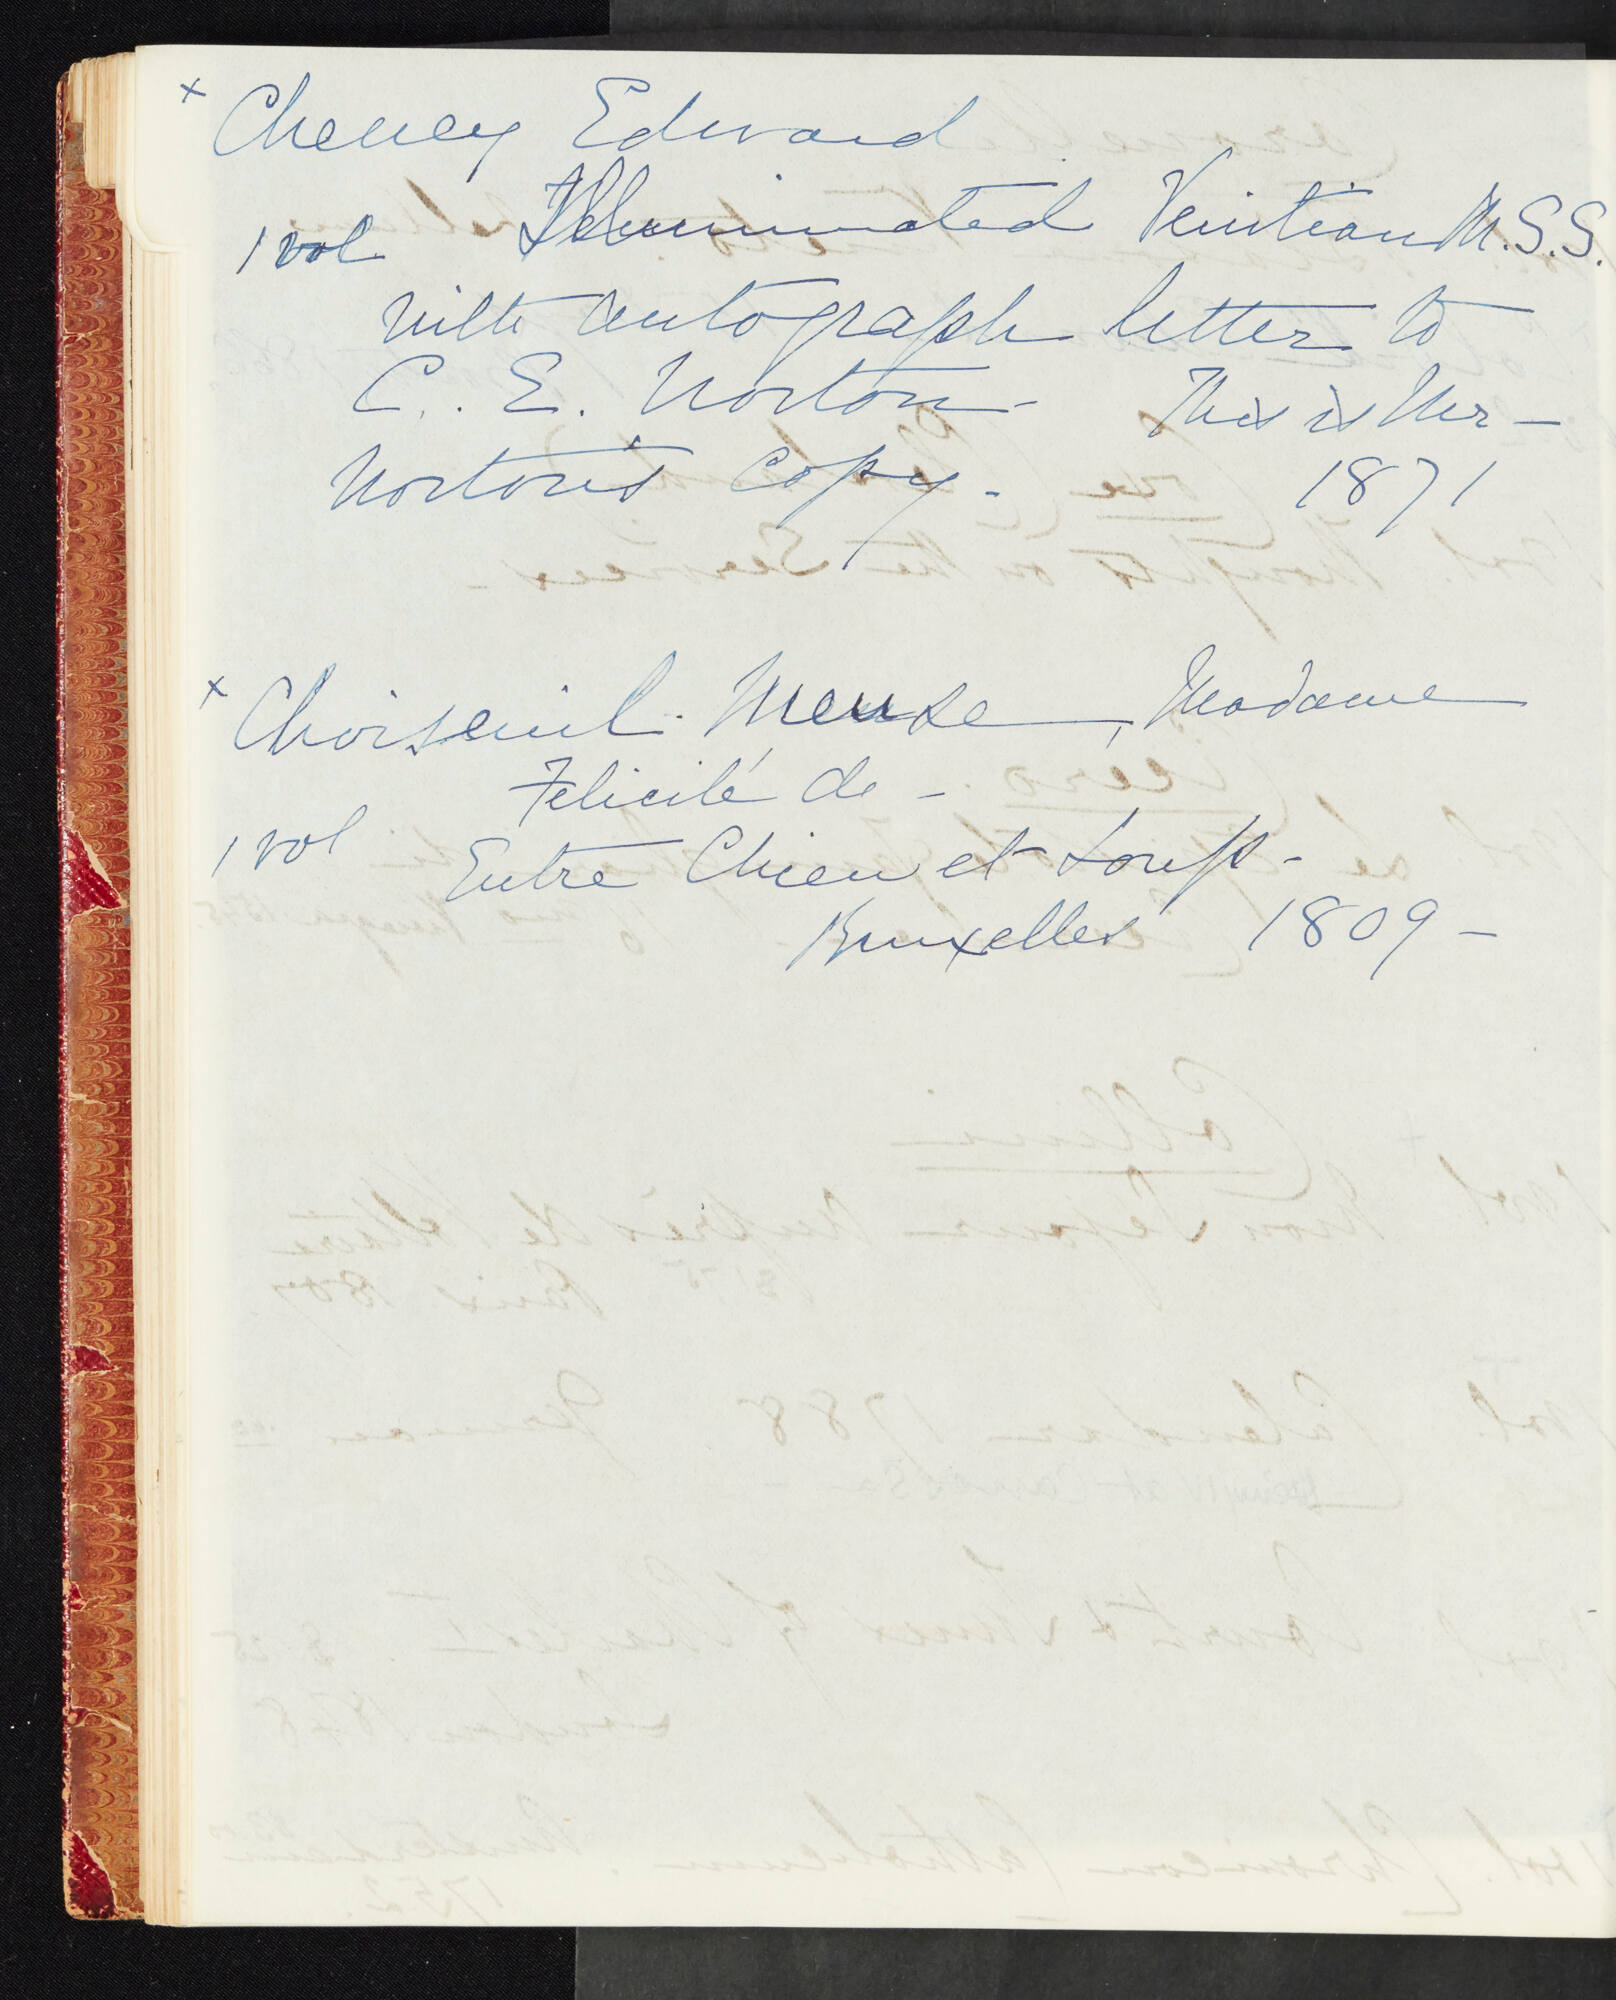 x Cheney Edward
1 vol Illuminated Venitian M.S.S.
with autograph letter to
C. E. Norton - This is Mr -
Norton's copy - 1871
x Choiseuil - Meuse, Madame
Felicité de -
1 vol Entre Chien et Loup -
Bruxelles 1809 -